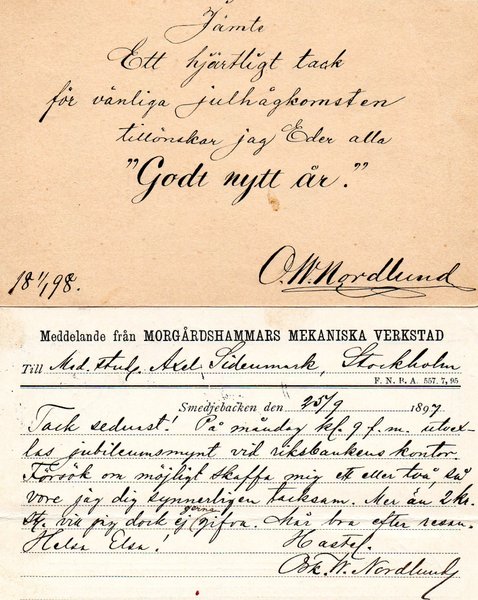 Jämte
Ett hjärtligt tack
för vänliga julhågkomsten
tillönskar jag Eder alla
"Godt nytt år."
O.W. Nordlund
18 1/1 98.
Meddelande från MORGÅRDSHAMMARS MEKANISKA VERKSTAD
Till Med. stud. Axel Sidenmark, Stockholm
F. N. B. A. 557. 7, 95
Smedjebacken den 25/9 1897
Tack sedurst! På måndag kl. 9 f.m. utvex-
las jubileumsmynt vid riksbankens kontor.
Försök om möjligt skaffa mig ett eller två så
vore jag dig synnerligen tacksam. Mer än 2 kr.
st. vill jag dock ej gerna gifva. Mår bra efter resan.
Helsa Elsa! Hastel.
W. Nordlund